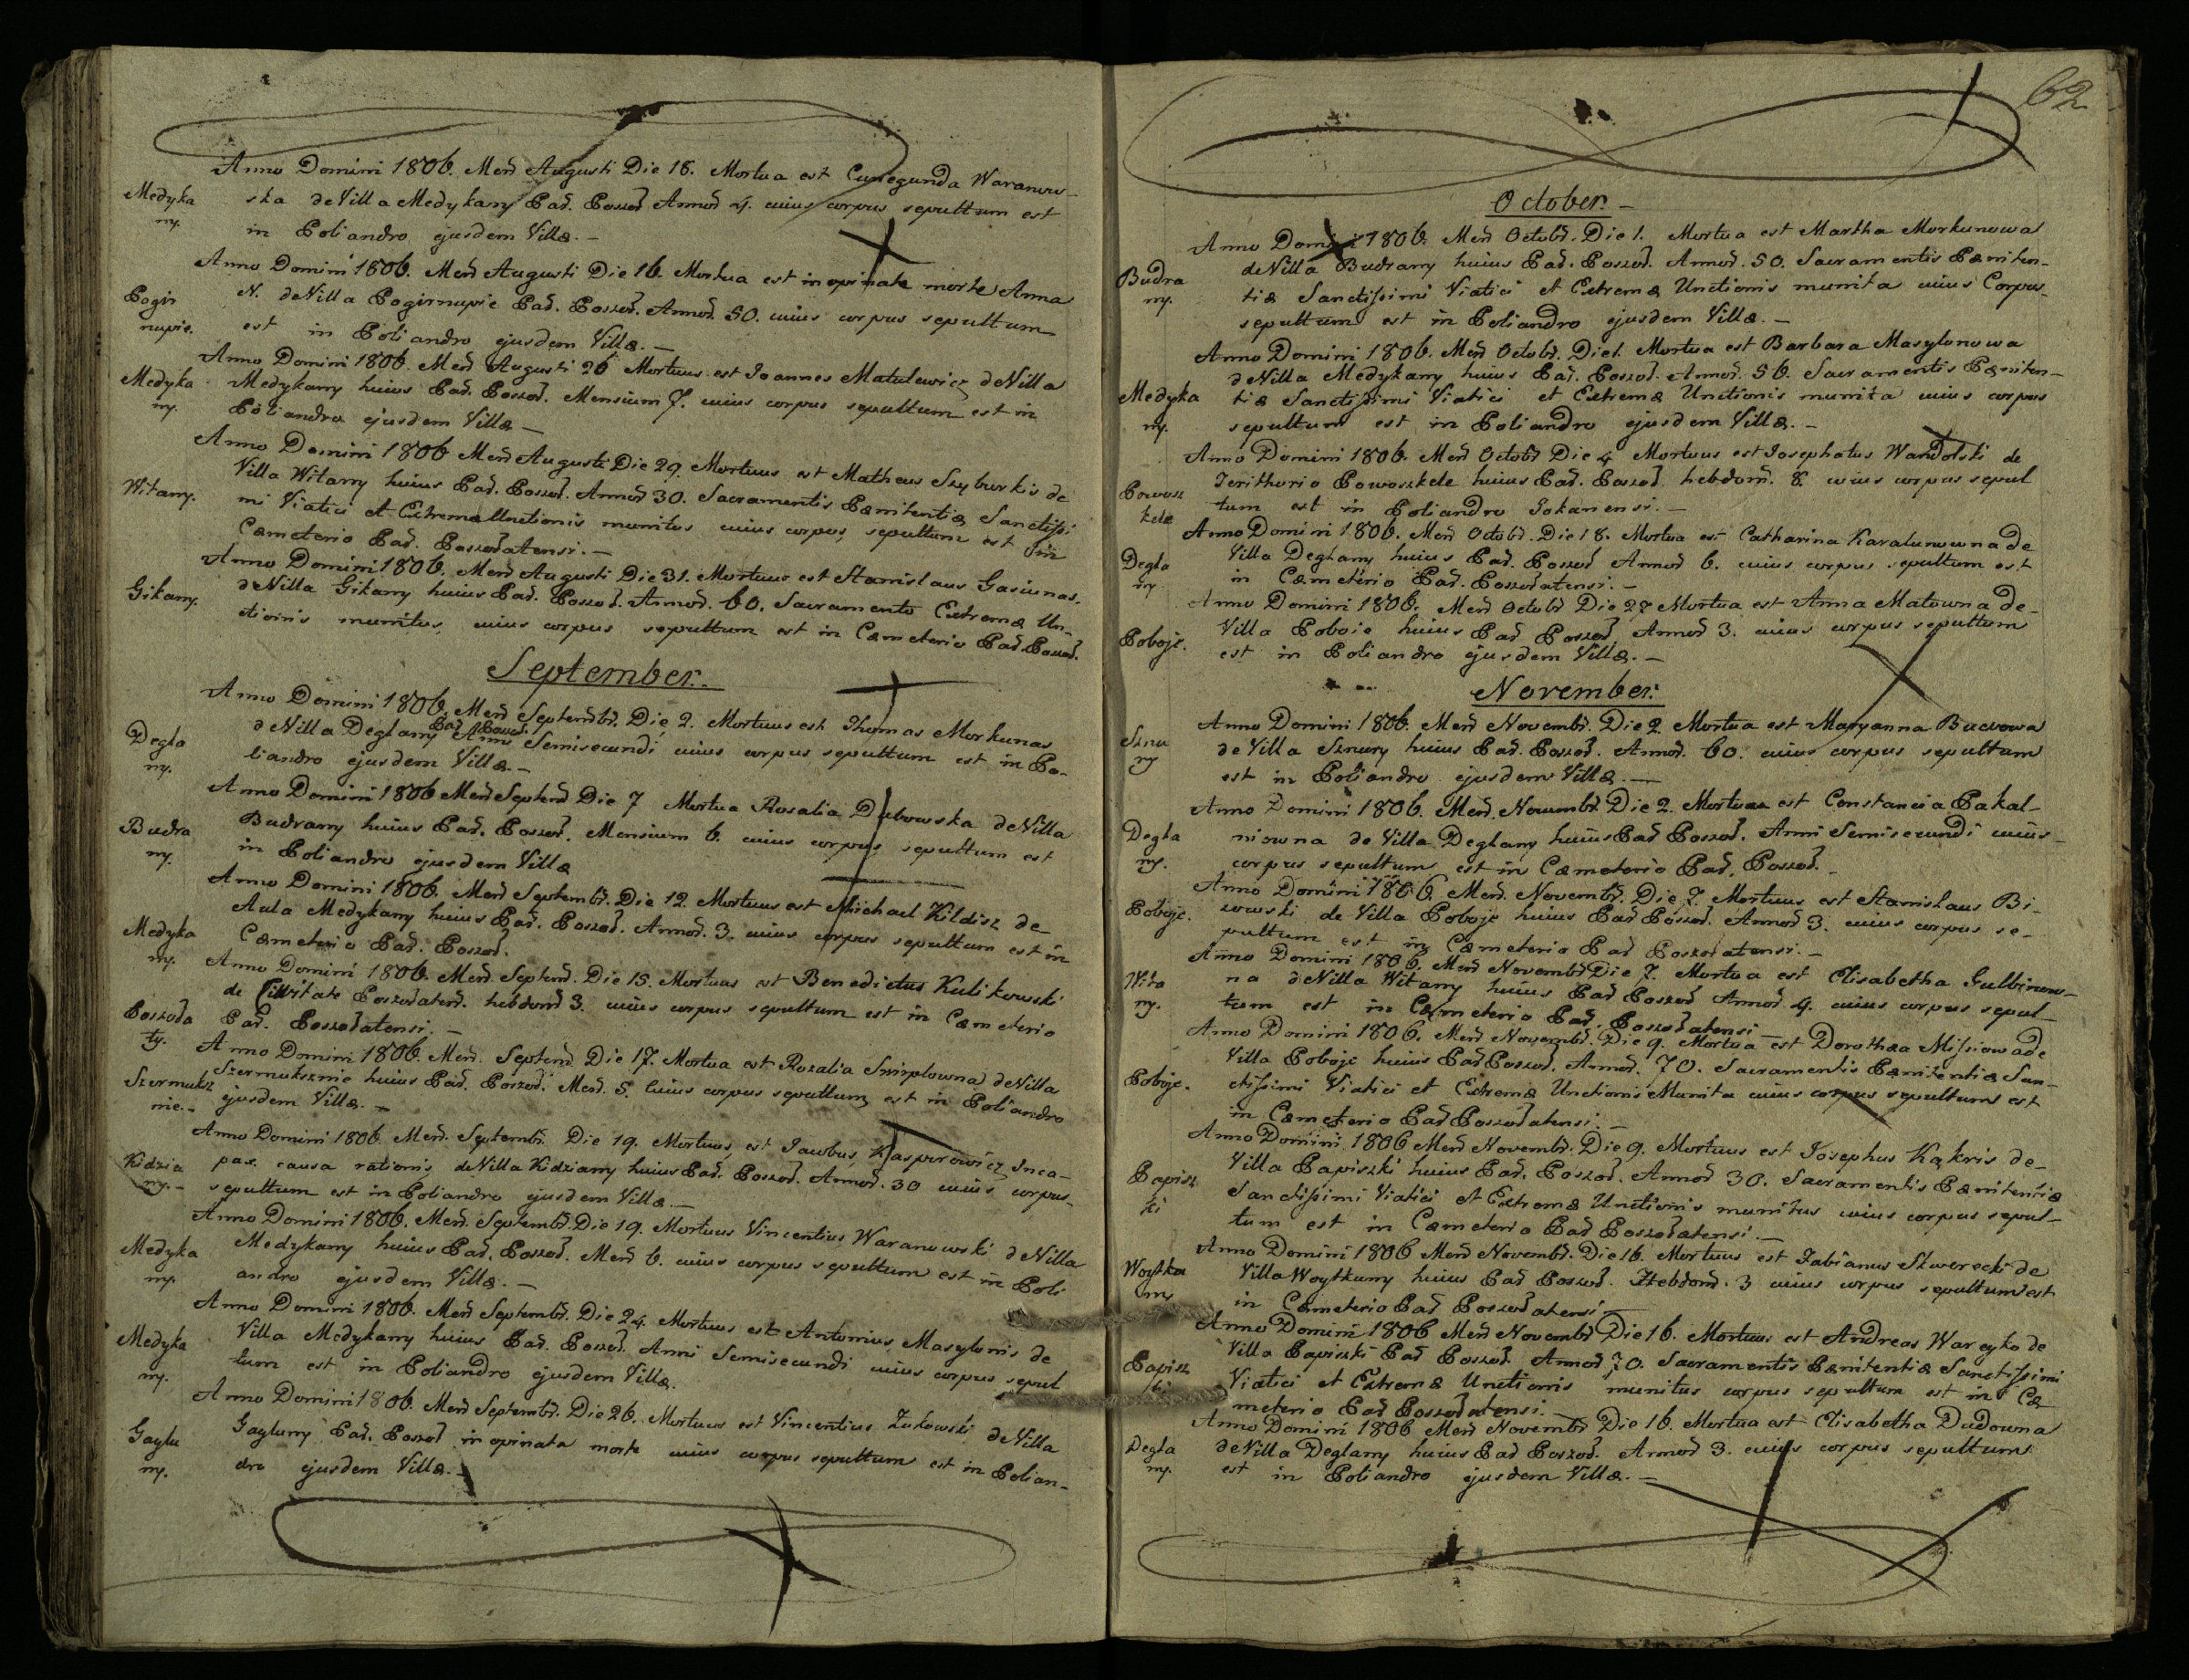 Anno Domini 1806. Mens̃ Augusti Die 18. Mortua est Cunegunda Waranow-
Medyka
ny.
ska de Villa Medykany Par̃. Poszoł Annor̃ 4. cuius corpus sepultum est
in Poliandro ejusdem Villæ. —
Anno Domini 1806. Mens̃ Augusti Die 16. Mortua est inopinata morte Anna
Pogir
nupie.
N. de Villa Pogirnupie Par̃. Poszoł. Annor̃. 50. cuius corpus sepultum
est in Poliandro ejusdem Villæ. —
Anno Domini 1806. Mens̃ Augusti 26 Mortuus est Joannes Matulewicz de Villa
Medyka
ny.
Medykany huius Par̃. Poszoł. Mensium 7. cuius corpus sepultum est in
Poliandro ejusdem Villæ —
Anno Domini 1806 Mens̃ Augusti Die 29. Mortuus est Matheus Szyburkis de
Witany.
Villa Witany huius Par̃. Poszoł. Annor̃ 30. Sacramentis Pænitentiæ Sanctissi
mi Viatici et Extremæ Unctionis munitus cuius corpus sepultum est in
Cæmeterio Par̃. Poszołatensi. —
Anno Domini 1806. Mens̃ Augusti Die 31. Mortuus est Stanislaus Gasiunas.
Gikany.
de Villa Gikany huius Par̃. Poszoł. Annor̃. 60. Sacramento Extremæ Un-
ctionis munitus, cuius corpus sepultum est in Cæmeterio Par̃. Poszoł.
September.
Anno Domini 1806. Mens̃ Septembr̃. Die 2. Mortuus est Thomas Morkunas
Degla
ny.
de Villa Deglany Par̃ Poszoł. Anni Semisecundi cuius corpus sepultum est in Po-
liandro ejusdem Villæ. —
Anno Domini 1806 Mens̃ Septembr̃ Die 7 Mortua Rosalia Dubowska de Villa
Budra
ny.
Budrany huius Par̃. Poszoł. Mensium 6. cuius corpus sepultum est
in Poliandro ejusdem Villæ
Anno Domini 1806. Mens̃ Septembr̃. Die 12. Mortuus est Michael Kildisz de
Medyka
ny.
Aula Medykany huius Par̃. Poszoł. Annor̃. 3. cuius corpus sepultum est in
Cæmeterio Par̃. Poszoł.
Anno Domini 1806. Mens̃ Septembr̃. Die 15. Mortuus est Benedictus Kulikowski
Poszoła
ty.
de Civitate Poszołatens̃. hebdom̃ 3. cuius corpus sepultum est in Cæmeterio
Par̃. Poszołatensi. —
Anno Domini 1806. Mens̃. Septembr̃ Die 17. Mortua est Rozalia Smiplowna de Villa
Szermuksz
nie. -
Szermuksznie huius Par̃. Poszoł. Mens̃. 5. Cuius corpus sepultum est in Poliandro
ejusdem Villæ. —
Anno Domini 1806. Mens̃. Septembr̃. Die 19. Mortuus est Jacobus Kasperowicz Inca-
Kidzia
ny. -
pax causa rationis de Villa Kidziany huius Par̃. Poszoł. Annor̃. 30 cuius corpus
sepultum est in Poliandro ejusdem Villæ. —
Anno Domini 1806. Mens̃. Septembr̃. Die 19. Mortuus Vincentius Waranowski de Villa
Medyka
ny.
Medykany huius Par̃. Poszoł. Mens̃ 6. cuius corpus sepultum est in Poli
andro ejusdem Villæ. —
Anno Domini 1806. Mens̃ Septembr̃. Die 24. Mortuus est Antonius Masylonis de
Medyka
ny.
Villa Medykany huius Par̃. Poszoł. Anni Semisecundi cuius corpus sepul
tum est in Poliandro ejusdem Villæ.
Anno Domini 1806. Mens̃ Septembr̃. Die 26. Mortuus est Vincentius Zukowski de Villa
Gaylu
ny.
Gayluny Par̃. Poszoł inopinata morte cuius corpus sepultum est in Polian-
dro ejusdem Villæ. -
62
October. —
Anno Domini 1806. Mens̃ Octobr̃. Die 1. Mortua est Martha Morkunowa
Budra
ny.
de Villa Budrany huius Par̃. Poszoł. Annor̃. 50. Sacramentis Pæniten-
tiæ Sanctissimi Viatici et Extremæ Unctionis munita cuius Corpus
sepultum est in Poliandro ejusdem Villæ. —
Anno Domini 1806. Mens̃ Octobr̃. Die 1. Mortua est Barbara Masylonowa
Medyka
ny.
de Villa Medykany huius Par̃. Poszoł. Annor̃. 56. Sacramentis Pæniten-
tiæ Sanctissimi Viatici et Extremæ Unctionis munita cuius corpus
sepultum est in Poliandro ejusdem Villæ. —
Anno Domini 1806. Mens̃ Octobr̃ Die 4 Mortuus est Josephatus Wandolski de
Powosz
kele
Territhorio Powoszkele huius Par̃. Poszoł. hebdom̃. 8. cuius corpus sepul
tum est in Poliandro Jokanensi. —
Anno Domini 1806. Mens̃ Octobr̃. Die 18. Mortua est Catharina Karalunowna de
Degla
ny.
Villa Deglany huius Par̃. Poszoł Annor̃ 6. cuius corpus sepultum est
in Cæmeterio Par̃. Poszołatensi. —
Anno Domini 1806. Mens̃ Octobr̃ Die 27 Mortua est Anna Matowna de-
Poboje.
Villa Poboie huius Par̃ Poszoł Annor̃ 3. cuius corpus sepultum
est in Poliandro ejusdem Villæ. —
November.
Anno Domini 1806. Mens̃ Novembr̃. Die 2 Mortua est Maryanna Bucwowa
Sznu
ry
de Villa Sznury huius Par̃. Poszoł. Annor̃. 60. cuius corpus sepultum
est in Poliandro ejusdem Villæ. —
Anno Domini 1806. Mens̃. Novembr̃ Die 2. Mortua est Constancia Pakal-
Degla
ny.
niowna de Villa Deglany huius Par̃ Poszoł. Anni Semisecundi cuius
corpus sepultum est in Cæmeterio Par̃. Poszoł.
Anno Domini 1806. Mens̃. Novembr̃. Die 7. Mortuus est Stanislaus Bi-
Poboje.
zowski de Villa Poboje huius Par̃ Poszoł. Annor̃ 3. cuius corpus se-
pultum est in Cæmeterio Par̃ Poszołatensi. —
Anno Domini 1806. Mens̃ Novembr̃ Die 7. Mortua est Elisabetha Gulbinow-
Wita
ny.
na de Villa Witany huius Par̃ Poszoł Annor̃ 4. cuius corpus sepul-
tum est in Cæmeterio Par̃. Poszołatensi —
Anno Domini 1806. Mens̃ Novembr̃. Die 9. Mortua est Dorothæa Missiowa de
Poboje.
Villa Poboje huius Par̃ Poszoł. Annor̃. 70. Sacramentis Pænitentiæ San-
ctissimi Viatici et Extremæ Unctionis Munita cuius corpus sepultum est
in Cæmeterio Par̃ Poszołatensi. —
Anno Domini 1806 Mens̃ Novembr̃. Die 9. Mortuus est Josephus Kąkris de-
Papisz
ki
Villa Papiszki huius Par̃. Poszoł. Annor̃ 30. Sacramentis Pænitentiæ
Sanctissimi Viatici et Extremæ Unctionis munitus cuius corpus sepul-
tum est in Cæmeterio Par̃ Poszołatensi. —
Anno Domini 1806 Mens̃ Novembr̃. Die 16 Mortuus est Fabianus Skworecki de
Woytku
ny
Villa Woytkuny huius Par̃ Poszoł. Hebdom̃. 3 cuius corpus sepultum est
in Cæmeterio Par̃ Poszołatensi —
Anno Domini 1806 Mens̃ Novembr̃ Die 16. Mortuus est Andreas Warcyko de
Papisz
ki
Villa Papiszki Par̃ Poszoł. Annor̃ 70. Sacramentis Pænitentiæ Sanctissimi
Viatici et Extremæ Unctionis munitus corpus sepultum est in Cæ
meterio Par̃ Poszołatensi. —
Anno Domini 1806 Mens̃ Novembr̃ Die 16. Mortua est Elisabetha Dudowna
Degla
ny.
de Villa Deglany huius Par̃ Poszoł. Annor̃ 3. cuius corpus sepultum
est in Poliandro ejusdem Villæ. —